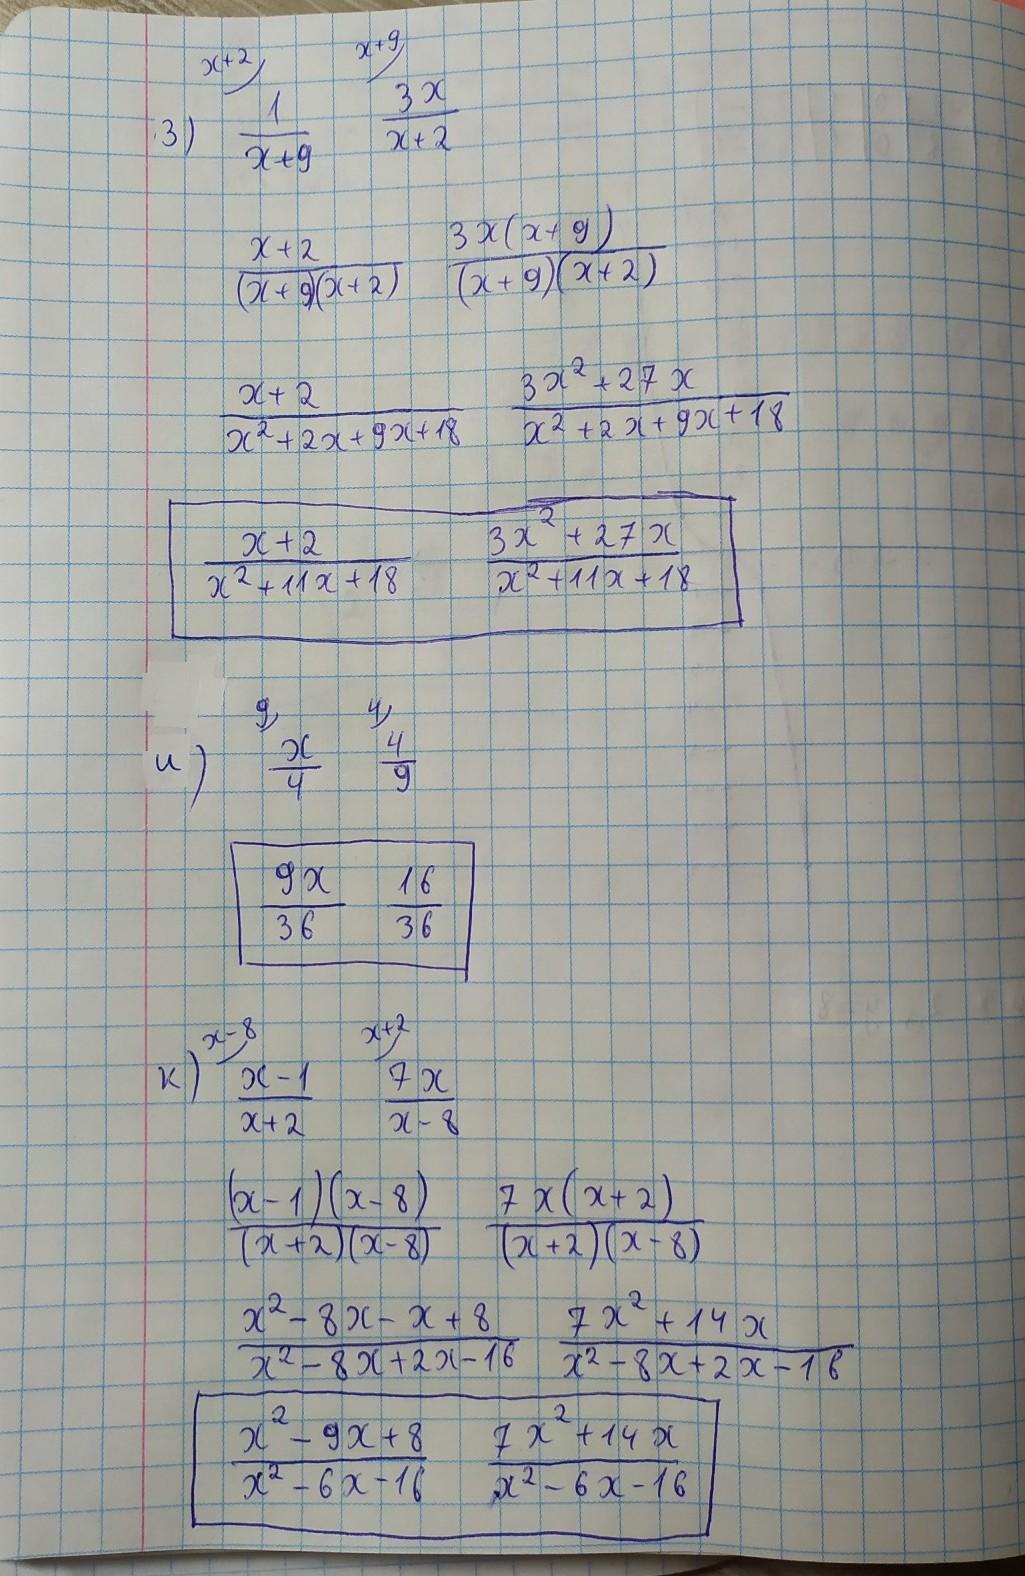 x+2 x+9
з) 1/(x+9) 3x/(x+2)
(x+2)/((x+9)(x+2)) 3x(x+9)/((x+9)(x+2))
(x+2)/(x²+2x+9x+18) (3x²+27x)/(x²+2x+9x+18)
(x+2)/(x²+11x+18) (3x²+27x)/(x²+11x+18)
9 4
и) x/4 4/9
9x/36 16/36
x-8 x+2
к) (x-1)/(x+2) 7x/(x-8)
(x-1)(x-8)/((x+2)(x-8)) 7x(x+2)/((x+2)(x-8))
(x²-8x-x+8)/(x²-8x+2x-16) (7x²+14x)/(x²-8x+2x-16)
(x²-9x+8)/(x²-6x-16) (7x²+14x)/(x²-6x-16)